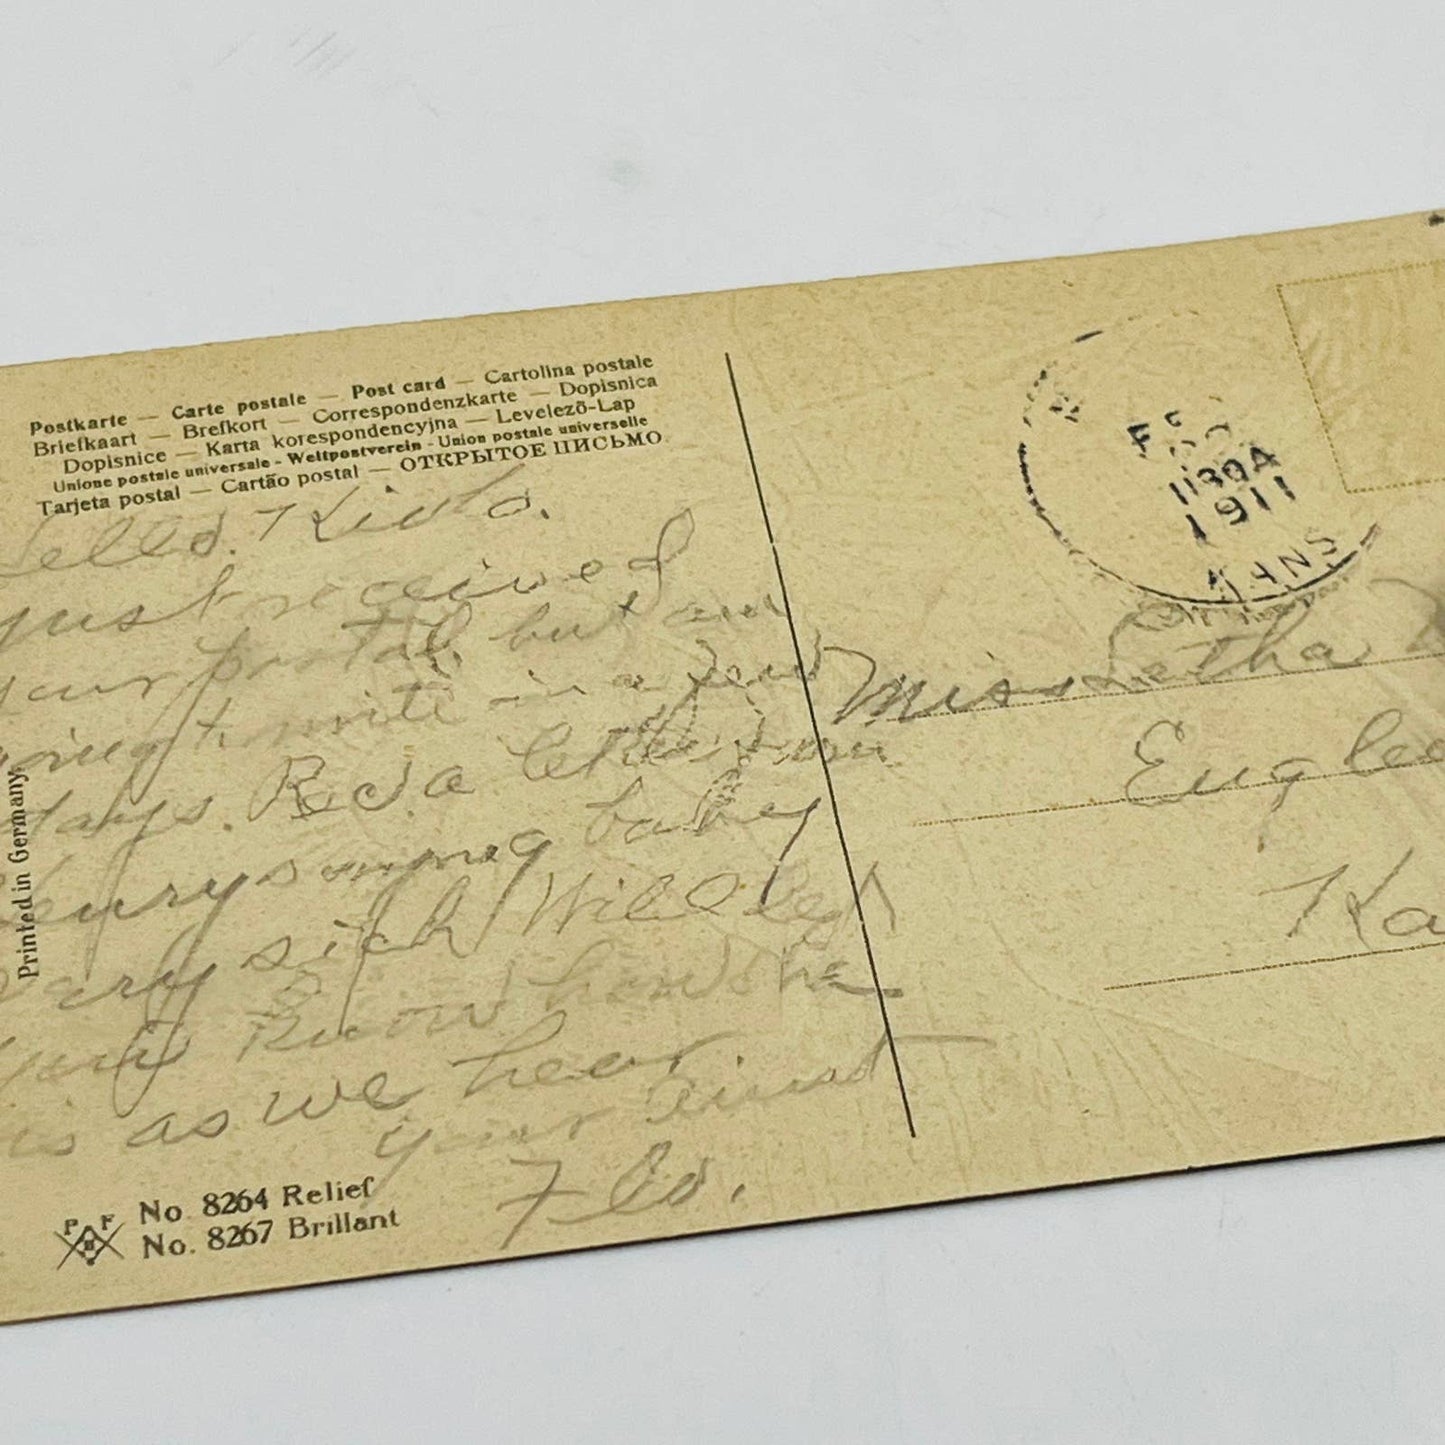 Postkarte — Carte postale — Post card — Cartolina postale
Briefkaart — Brefkort — Correspondenzkarte — Dopisnica
Dopisnice — Karta korespondencyjna — Levelezõ-Lap
Unione postale universale - Weltpostverein - Union postale universelle
Tarjeta postal — Cartão postal — ОТКРЫТОЕ ПИСЬМО
Hello. Kido.
just received
your postal, but am
going to write in a few
days. Rcd a letter
Henrys baby
very sick Will let
you know how she
is as we hear.
your Aunt
Flo.
Printed in Germany.
P F B
No 8264 Relief
No. 8267 Brillant
1130A
1911
KANS
Miss Letha
Ka